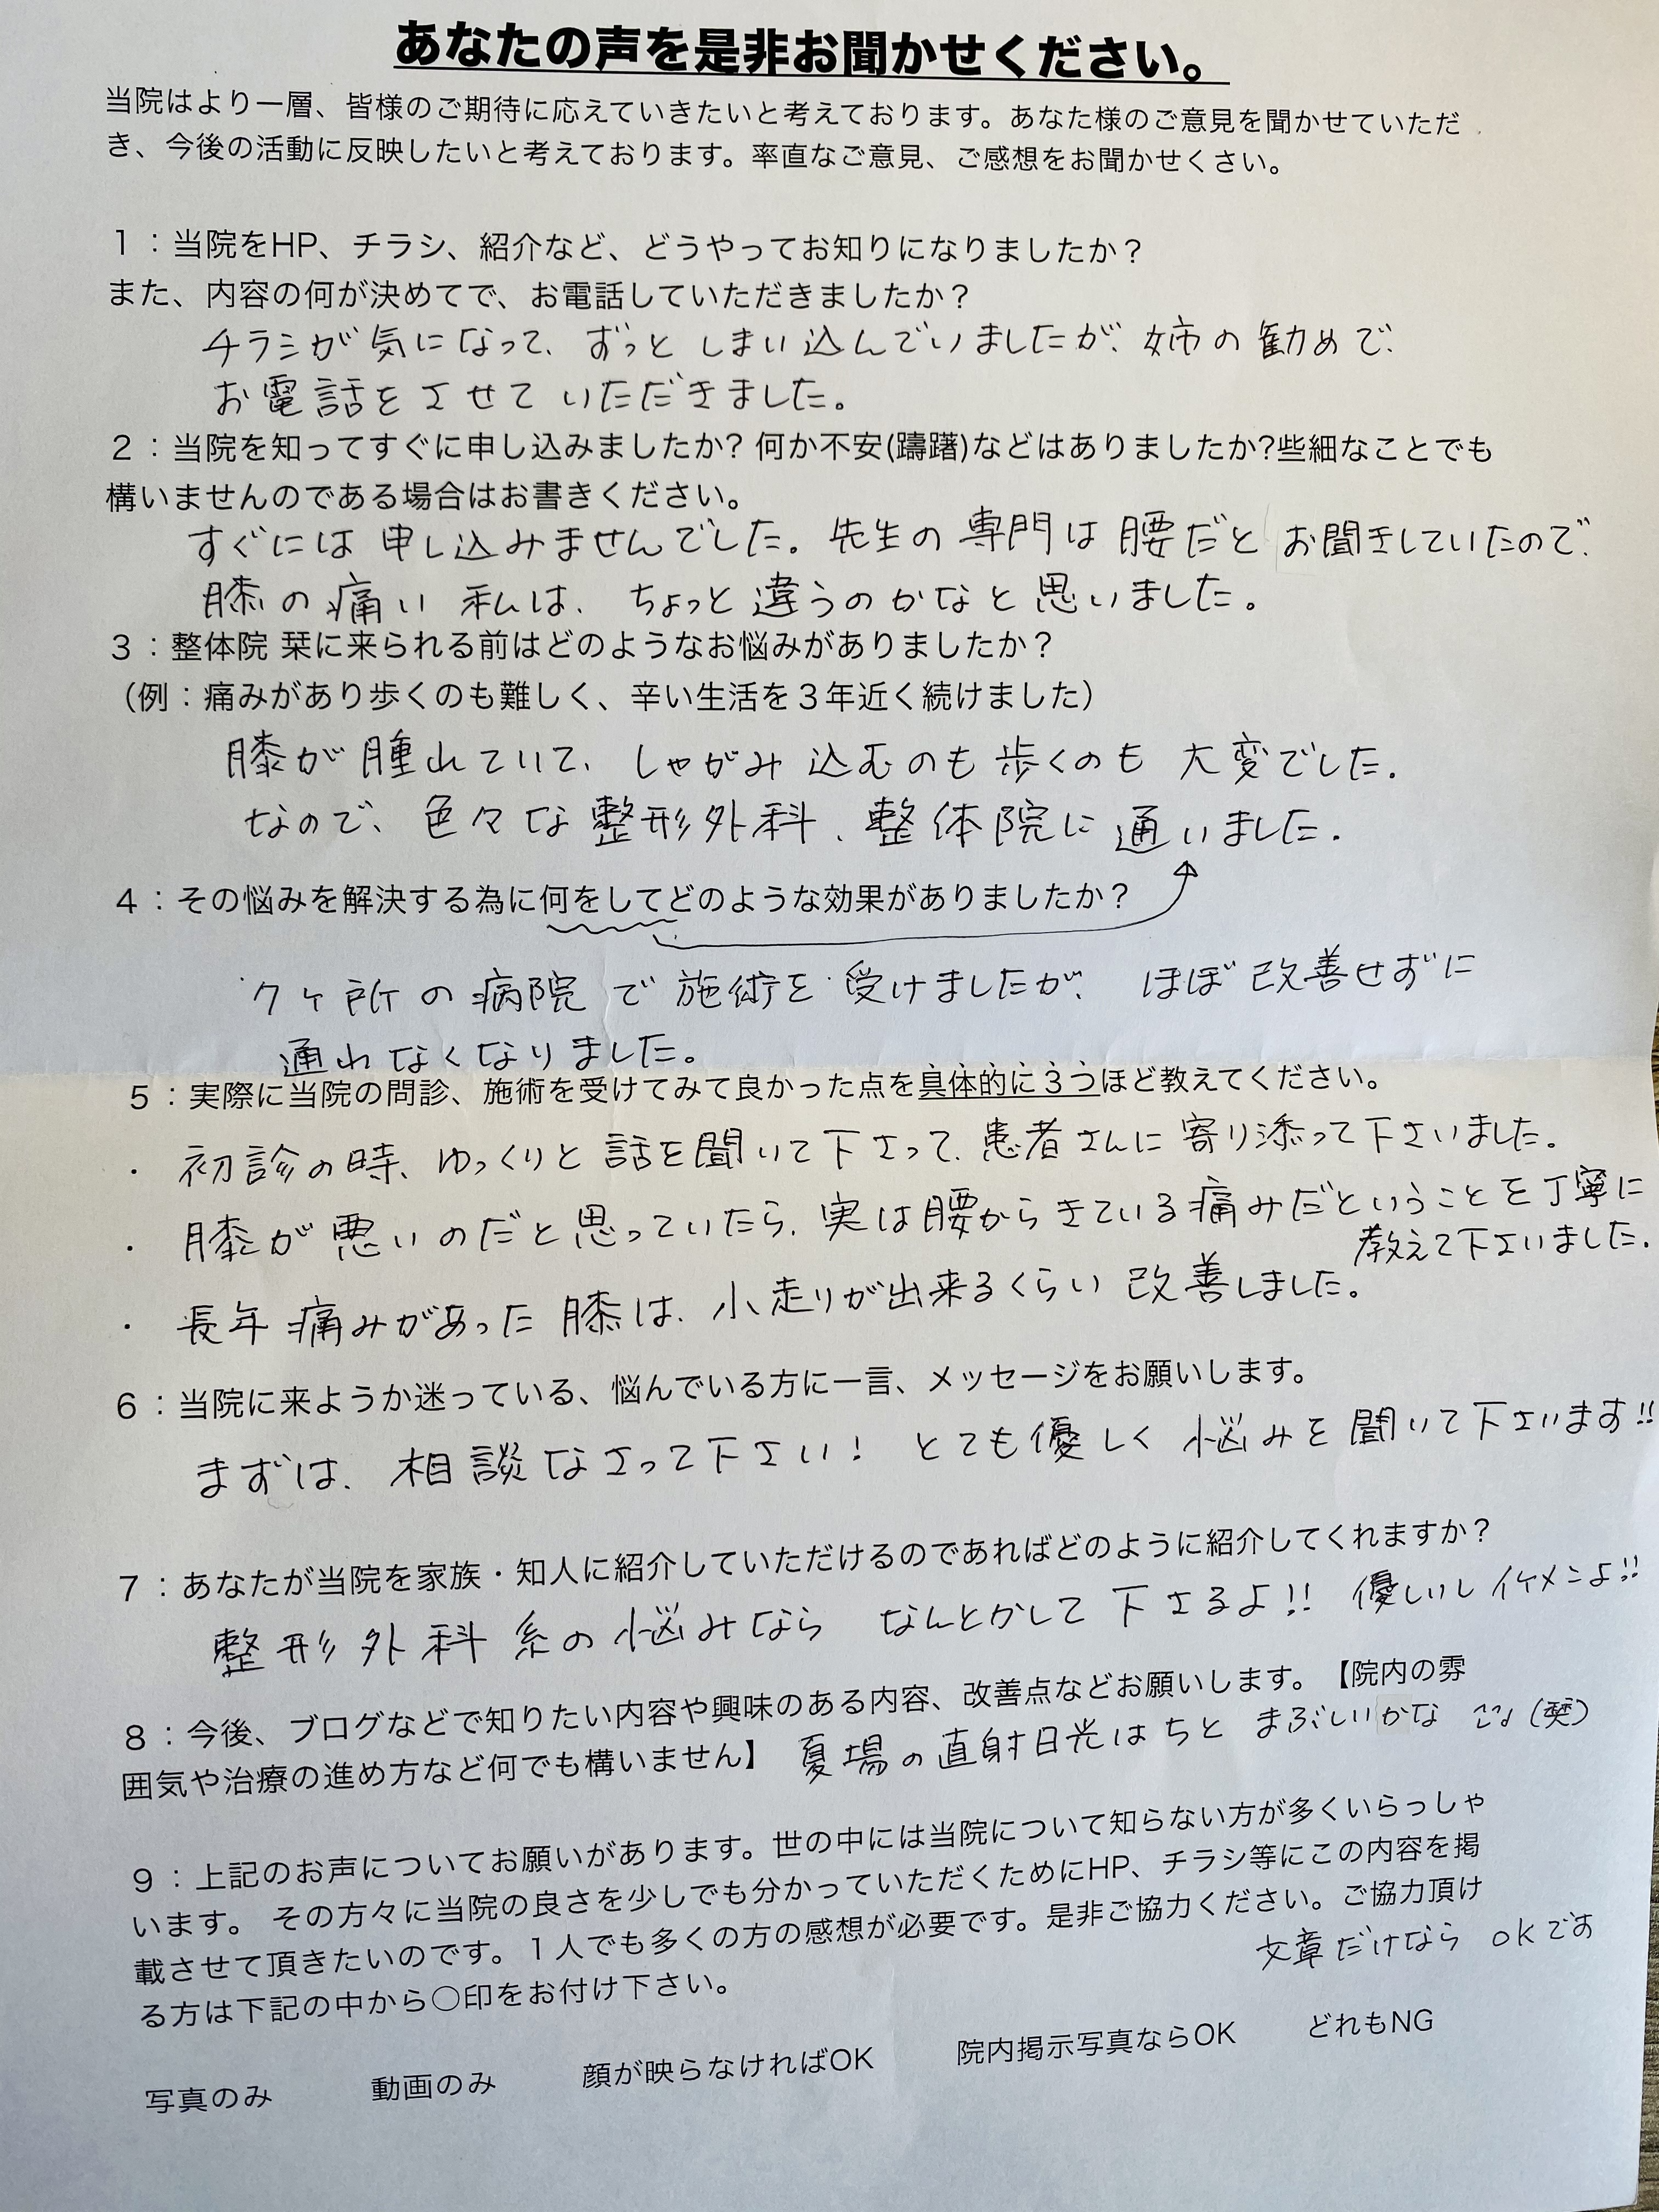 あなたの声を是非お聞かせください。
当院はより一層、皆様のご期待に応えていきたいと考えております。あなた様のご意見を聞かせていただ
き、今後の活動に反映したいと考えております。率直なご意見、ご感想をお聞かせくさい。
１：当院をHP、チラシ、紹介など、どうやってお知りになりましたか？
また、内容の何が決めてで、お電話していただきましたか？
チラシが気になって、ずっと しまい込んでいましたが、姉の勧めで、
お電話をさせていただきました。
２：当院を知ってすぐに申し込みましたか? 何か不安(躊躇)などはありましたか?些細なことでも
構いませんのである場合はお書きください。
すぐには申し込みませんでした。先生の専門は腰だとお聞きしていたので、
膝の痛い私は、ちょっと違うのかなと思いました。
３：整体院 栞に来られる前はどのようなお悩みがありましたか？
（例：痛みがあり歩くのも難しく、辛い生活を３年近く続けました）
膝が腫れていて、しゃがみ込むのも歩くのも大変でした。
なので、色々な整形外科、整体院に通いました。
４：その悩みを解決する為に何をしてどのような効果がありましたか？
7ヶ所の病院で施術を受けましたが、ほぼ改善せずに
通れなくなりました。
５：実際に当院の問診、施術を受けてみて良かった点を具体的に３つほど教えてください。
・初診の時、ゆっくりと話を聞いて下さって、患者さんに寄り添って下さいました。
・膝が悪いのだと思っていたら、実は腰からきている痛みだということを丁寧に
教えて下さいました。
・長年痛みがあった膝は、小走りが出来るくらい改善しました。
６：当院に来ようか迷っている、悩んでいる方に一言、メッセージをお願いします。
まずは、相談なさって下さい！ とても優しく悩みを聞いて下さいます!!
７：あなたが当院を家族・知人に紹介していただけるのであればどのように紹介してくれますか？
整形外科系の悩みなら なんとかして下さるよ!! 優しいしイケメンよ!!
８：今後、ブログなどで知りたい内容や興味のある内容、改善点などお願いします。【院内の雰
囲気や治療の進め方など何でも構いません】 夏場の直射日光はちと まぶしいかな (笑)
９：上記のお声についてお願いがあります。世の中には当院について知らない方が多くいらっしゃ
います。 その方々に当院の良さを少しでも分かっていただくためにHP、チラシ等にこの内容を掲
載させて頂きたいのです。１人でも多くの方の感想が必要です。是非ご協力ください。ご協力頂け
る方は下記の中から〇印をお付け下さい。
文章だけなら OKです
写真のみ 動画のみ 顔が映らなければOK 院内掲示写真ならOK どれもNG